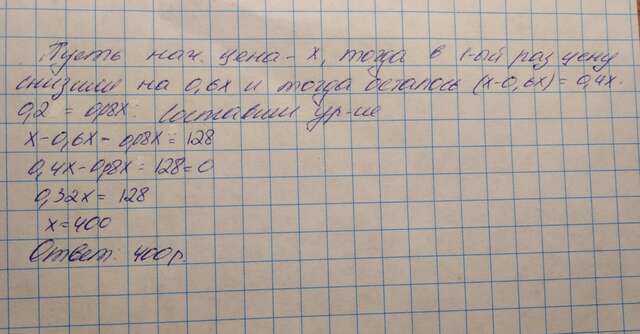 Пусть нач. цена - x, тогда в 1-ый раз цену
снизили на 0,6x и тогда осталось (x-0,6x) = 0,4x.
0,2 = 0,08x. Составим ур-ие
x-0,6x-0,08x = 128
0,4x-0,08x = 128=0
0,32x = 128
x=400
Ответ: 400р.